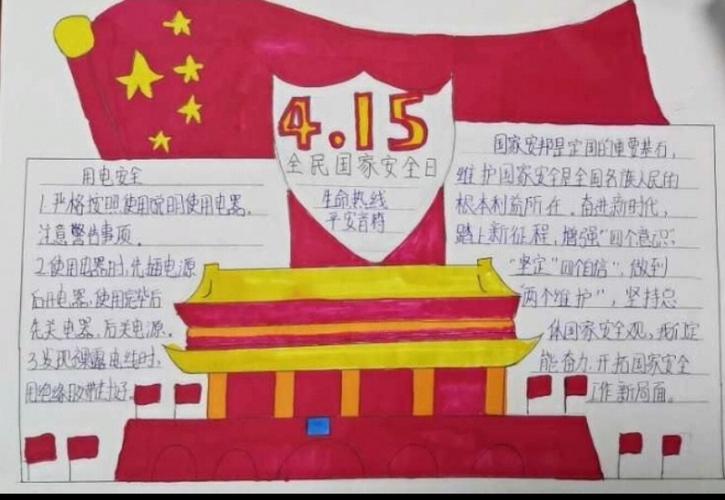 4.15
全民国家安全日
生命热线
平安首榜
用电安全
1.严格按照使用说明使用电器,
注意警告事项。
2.使用电器时,先插电源
后开电器,使用完毕后
先关电器,后关电源。
3.发现裸露电线时,
用绝缘胶带封好。
国家安邦是定国的重要基石,
维护国家安全是全国各族人民的
根本利益所在。奋进新时代,
踏上新征程,增强"四个意识",
"坚定"四个自信",做到
"两个维护",坚持总
体国家安全观,我们定
能奋力开拓国家安全
工作新局面。